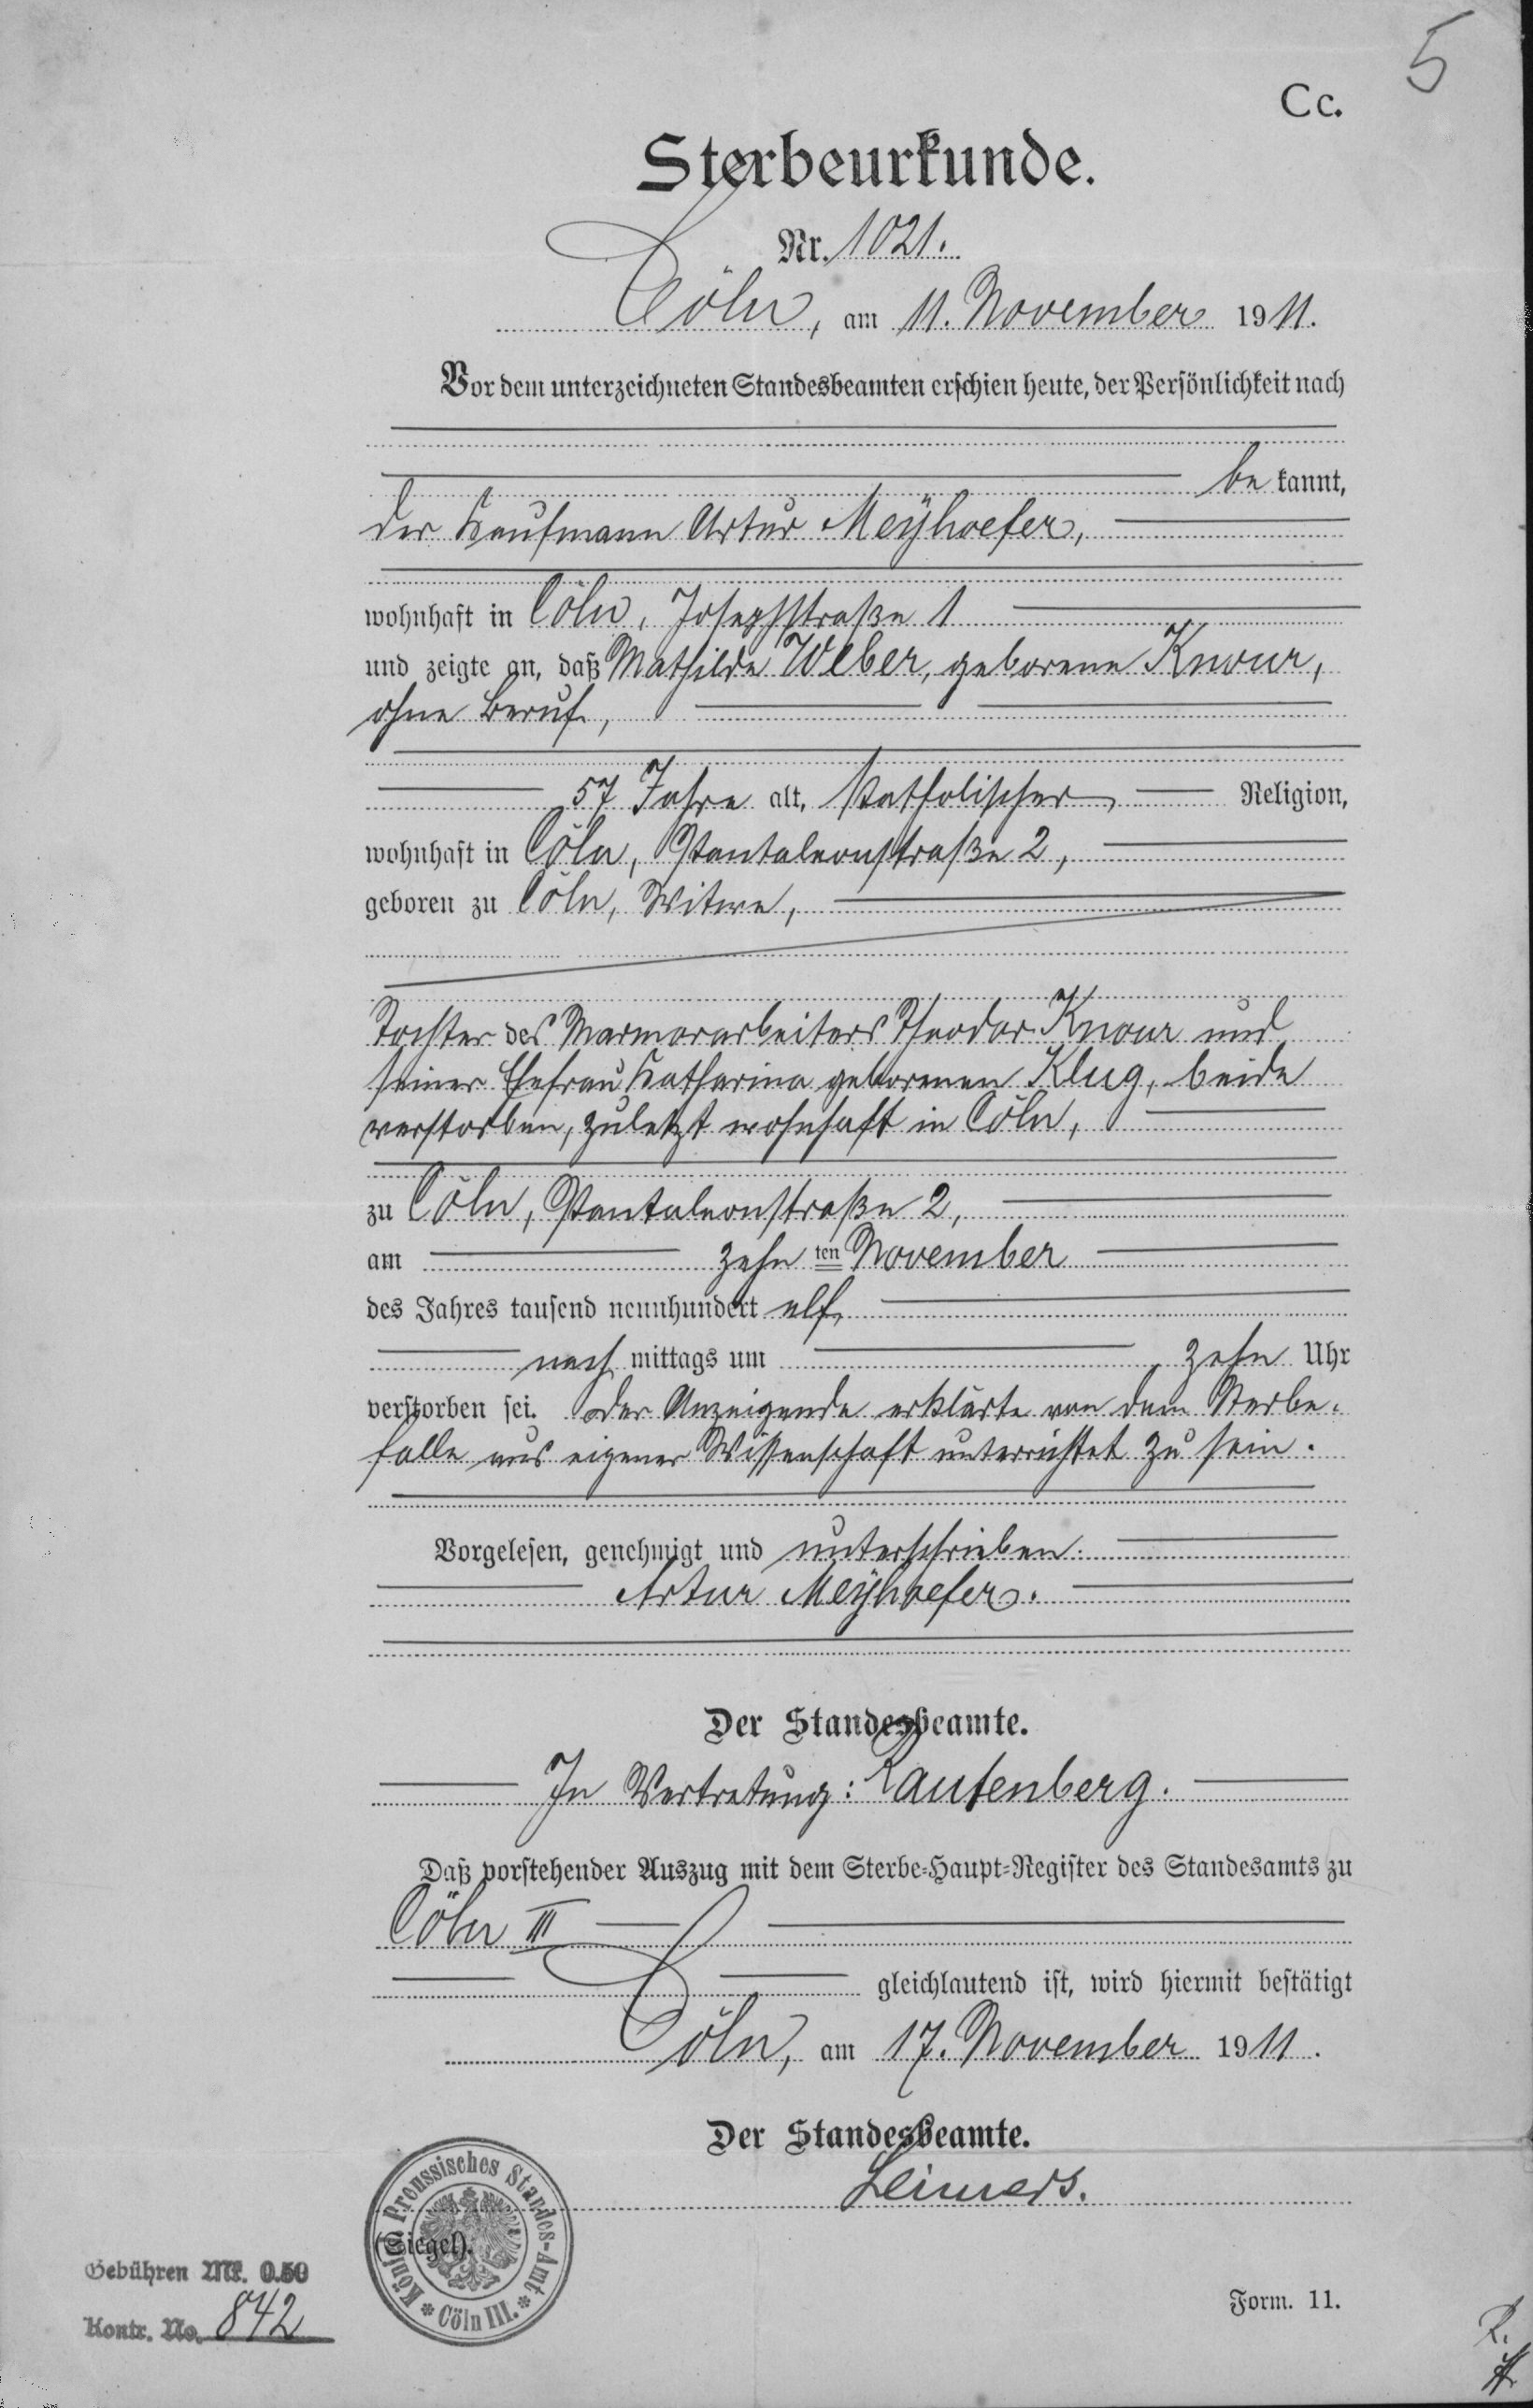 5
Cc.
Sterbeurkunde.
Nr. 1021.
Cöln, am 11. November 1911.
Vor dem unterzeichneten Standesbeamten erschien heute, der Persönlichkeit nach
be kannt,
der Kaufmann Artur Meyhoefer,
wohnhaft in Cöln, Josephstraße 1
und zeigte an, daß Mathilde Weber, geborene Knour,
ohne Beruf,
57 Jahre alt, katholischer Religion,
wohnhaft in Cöln, Pantaleonstraße 2,
geboren zu Cöln, Witwe,
Tochter des Marmorarbeiters Theodor Knour und
seiner Ehefrau Katharina geborenen Klug, beide
verstorben, zuletzt wohnhaft in Cöln,
zu Cöln, Pantaleonstraße 2,
am zehn ten November
des Jahres tausend neunhundert elf,
nach mittags um zehn Uhr
verstorben sei. Der Anzeigende erklärte von dem Sterbe-
falle aus eigener Wissenschaft unterrichtet zu sein.
Vorgelesen, genehmigt und unterschrieben.
Artur Meyhoefer.
Der Standesbeamte.
In Vertretung: Rautenberg.
Daß vorstehender Auszug mit dem Sterbe-Haupt-Register des Standesamts zu
Cöln III
gleichlautend ist, wird hiermit bestätigt
Cöln, am 17. November 1911.
Der Standesbeamte.
Leimers.
(Siegel).
Königl. Preussisches Standes-Amt * Cöln III. *
Gebühren Mk. 0.50
Kontr. No. 842
Form. 11.